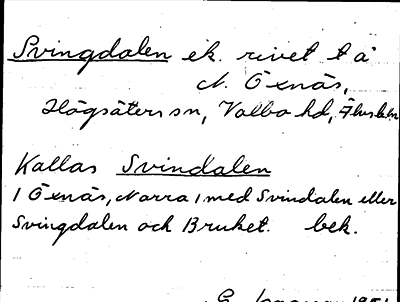 Svingdalen ek. rivet t å
N. Öxnäs,
Högsäters sn, Valbo hd, Älvsbln
Kallas Svindalen
1 Öxnäs, Norra, med Svindalen eller
Svingdalen och Bruket. bek.